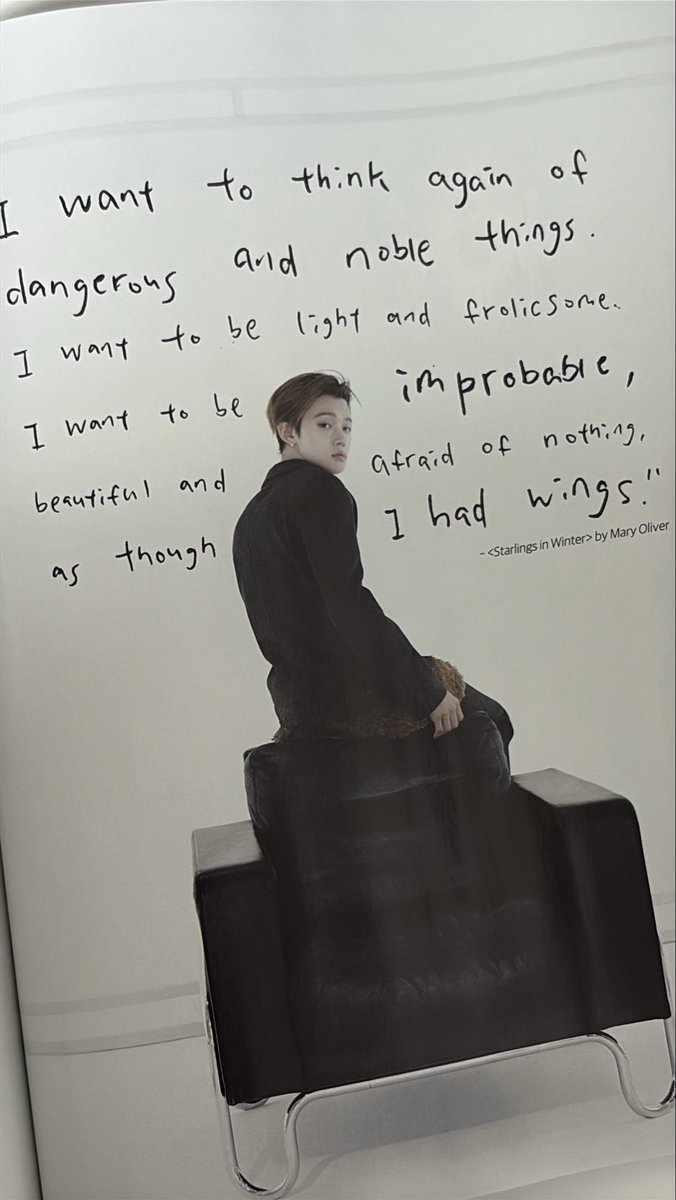 I want to think again of
dangerous and noble things.
I want to be light and frolicsome.
I want to be improbable,
beautiful and afraid of nothing,
as though I had wings."
- <Starlings in Winter> by Mary Oliver